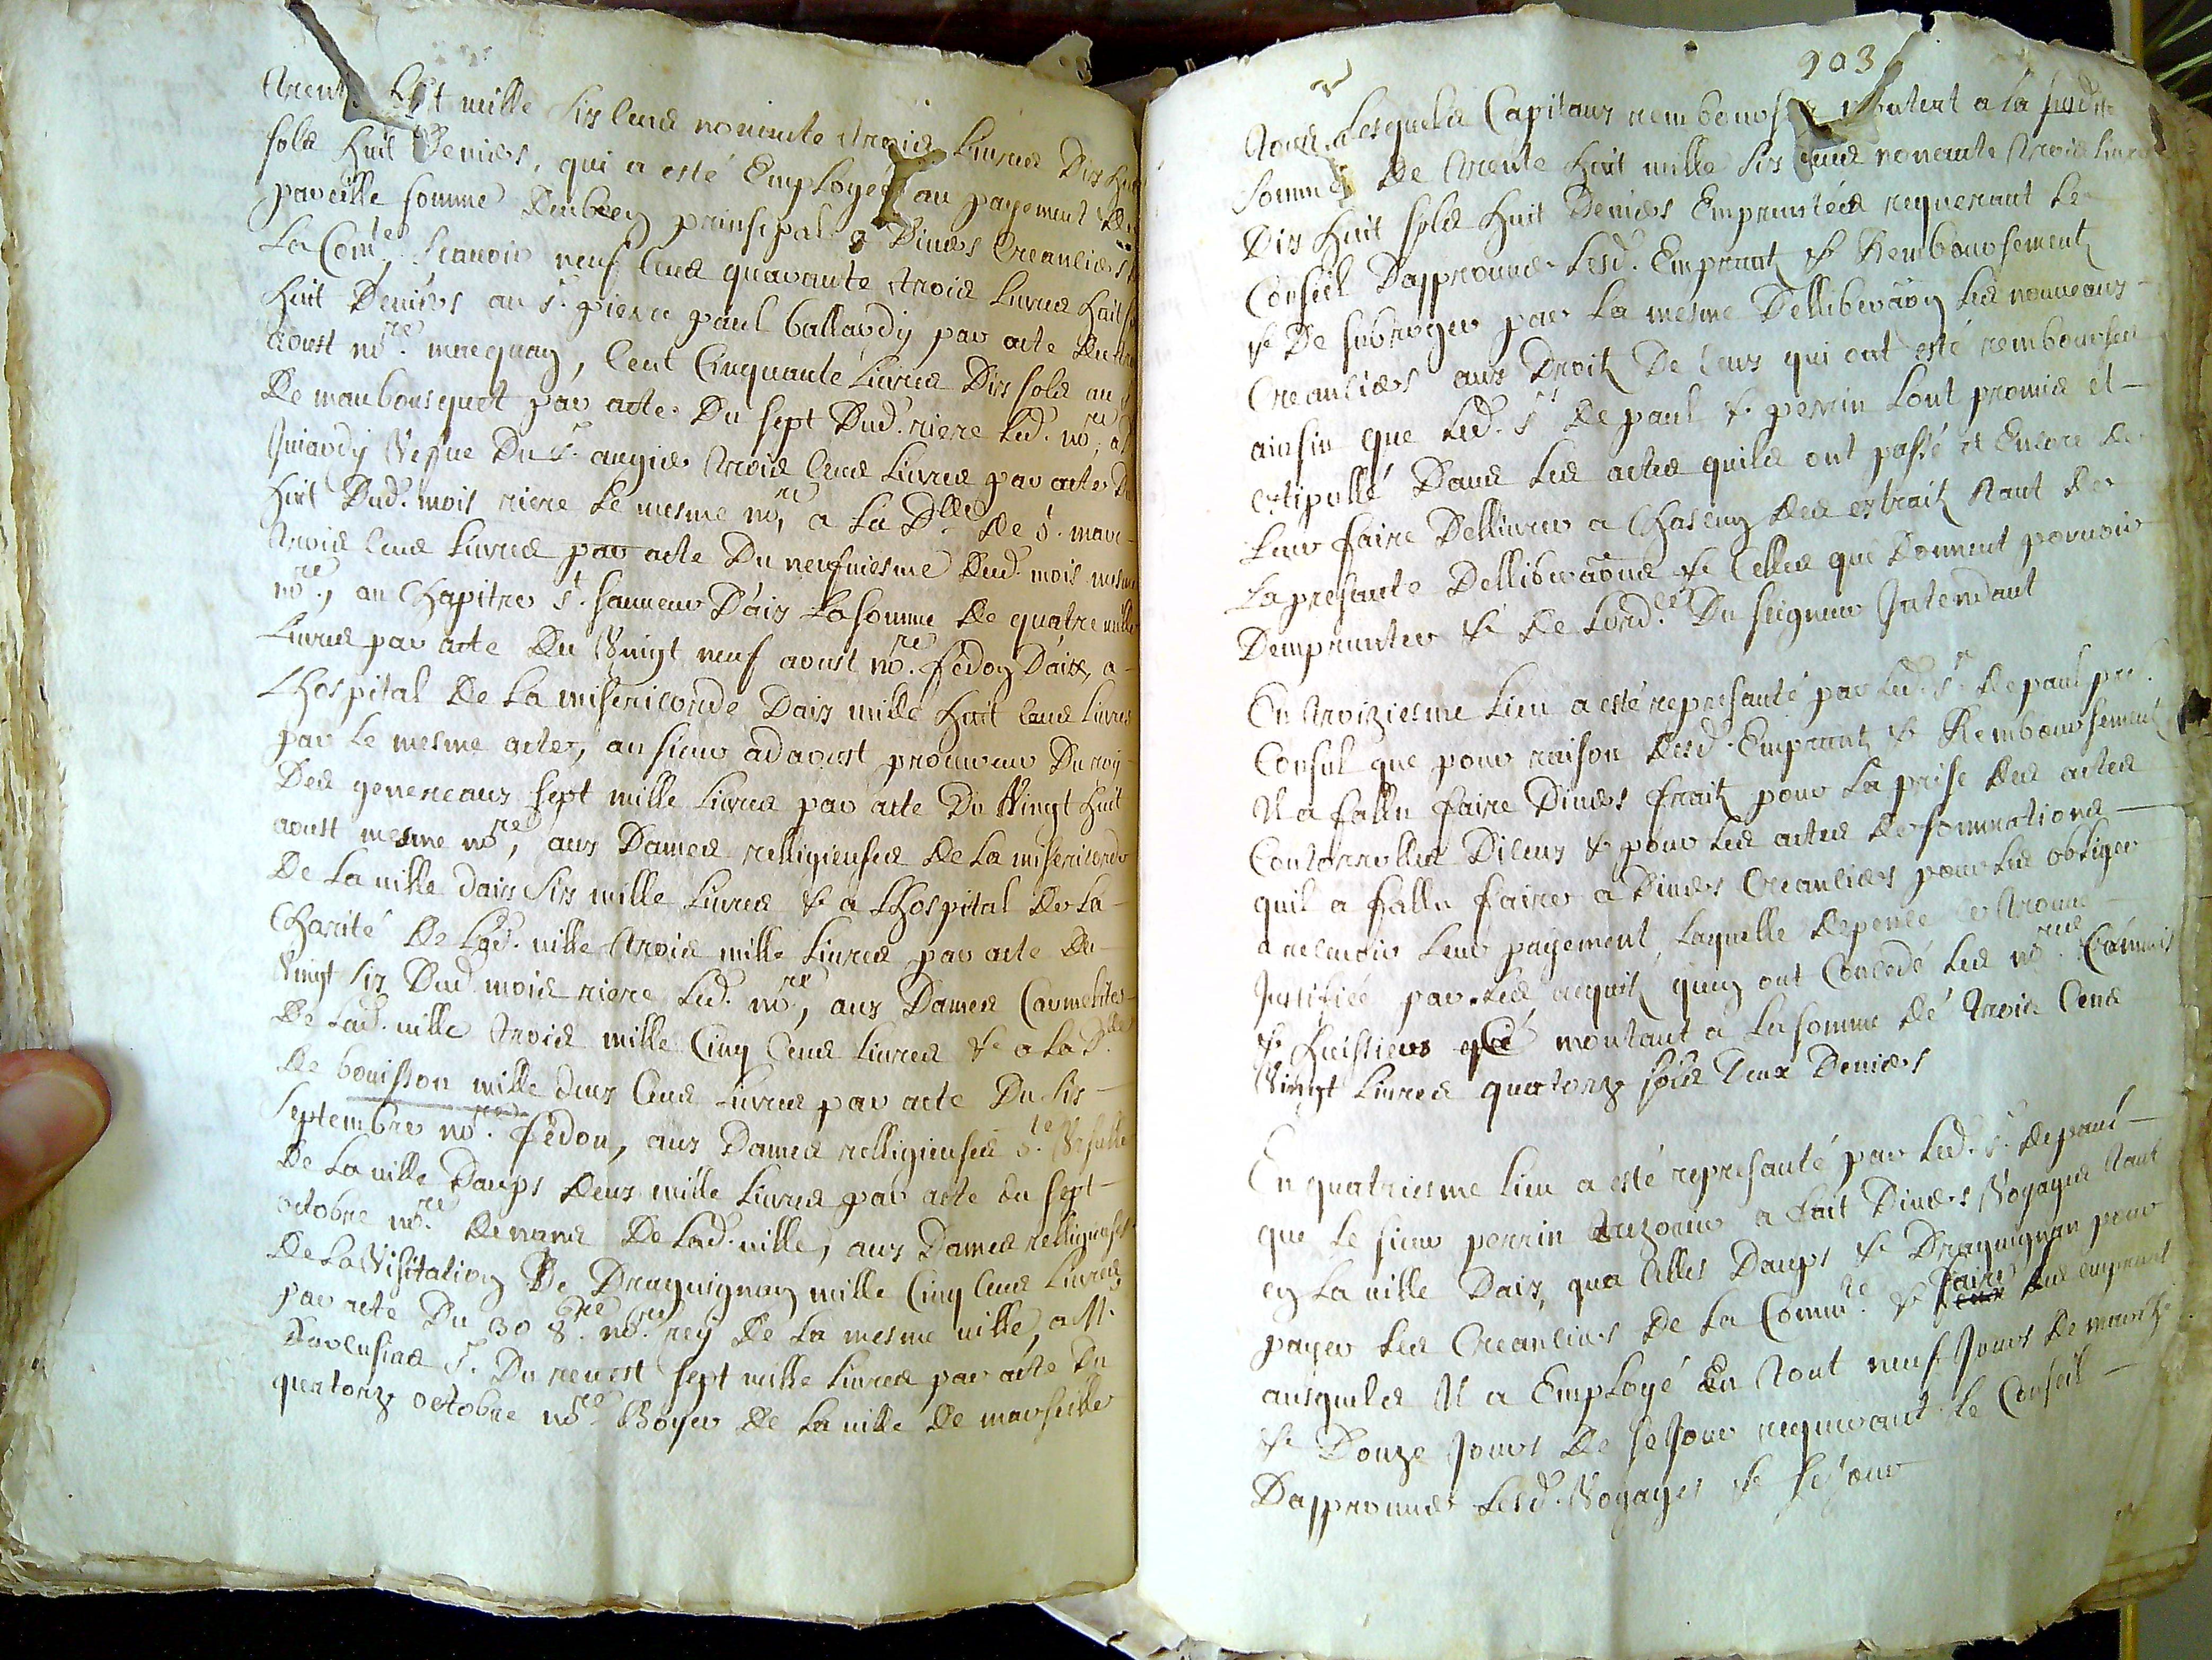 trente huit mille six cens nonante trois livres dix huit
sols huit deniers, qui a esté Employée au payement de
pareille somme deubeey prinsipal a divers Creanciers
La Com.te Scavoir neuf cens quarante trois livres huit
huit deniers au s.r pierre paul ballardy par acte du
aoust no.re macquan, Cent Cinquante livres dix sols au
De maubousquet par acte du sept dud. riere led. no.re, a
Juiardy Vefve du s.r augier trois cens livres par acte du
huit dud. mois riere le mesme no.re, a la D.lle de s.t marc
trois cens livres par acte du neufviesme dud. mois mesme
no.re, au Chapitre s.t sauveur d'aix la somme de quatre mille
livres par acte du Vingt neuf aoust no.re fedon d'aix, a
Lhospital de la misericorde daix mille huit cens livres
par le mesme acte, au sieur adaoust procureur du roy
des genereaux sept mille livres par acte du Vingt huit
aoust mesme no.re, aux Dames relligieuses de la misericorde
De la ville daix six mille livres & a Lhospital de la
Charité de lad. ville trois mille livres par acte du
Vingt six dud. mois riere led. no.re, aux Dames Carmelites
De lad. ville trois mille Cinq Cens livres & a la D.lle
De bouisson mille deux Cens livres par acte du six
septembre no.re fedon, aux Dames relligieuses s.te Vrsulle
De la ville daups deux mille livres par acte du sept
octobre no.re de lad. ville, aux Dames relligieuses
De la Visitation de Draguignan mille Cinq Cens livres
par acte du 30 8.bre no.re rey de la mesme ville, a M.
s.r du revest sept mille livres par acte du
quatorze octobre no.re Boyer de la ville de marseille
903
tous Lesquels Capitaux rembourses montent a la susdite
somme de trente huit mille six cens nonante trois livres
Dix huit sols huit deniers Empruntées requerant le
Conseil Dapprouver lesd. Emprunts & Remboursements
& De subroger par la mesme Delliberaõn les nouveaux
Creanciers aux Droits de ceux qui ont esté remboursés
ainsin que led. s.r Depaul & perrin l'ont promis et
estipullé Dans les actes quils ont passé et Encore de
leur faire Dellivrer a Chascung des extraits tant de
La presante Delliberaõns & Celles qui Donnent pouvoir
Demprunter & de lord.ce Du seigneur Intendant
En troiziesme lieu a esté represanté par led. s.r Depaul pre.r
Consul que pour raison desd. Emprunts & Remboursements
Il a fallu faire Divers fraits pour la prise des actes
Contorrolles Diceux & pour les actes de sommations
quil a fallu faire a Divers Creanciers pour les obliger
a recevoir leur payement, laquelle depence se trouve
Justifiée par les acquits quen ont Concedé les no.res Cõmmis
& huissiers montant a la somme de trois Cens
Vingt livres quatorze sols deux Deniers
En quatriesme lieu a esté represanté par led. s.r depaul
que le sieur perrin trezorier a fait Divers Voyages tant
en la ville Daix, qua Celles Daups & Draguignan pour
payer les Creanciers de la Comm.té & faire les emprunts
ausquels Il a Employé En tout neuf Jours de marche
& Douze Jours de sejour requerant le Conseil
Dapprouver lesd. Voyages & sejour